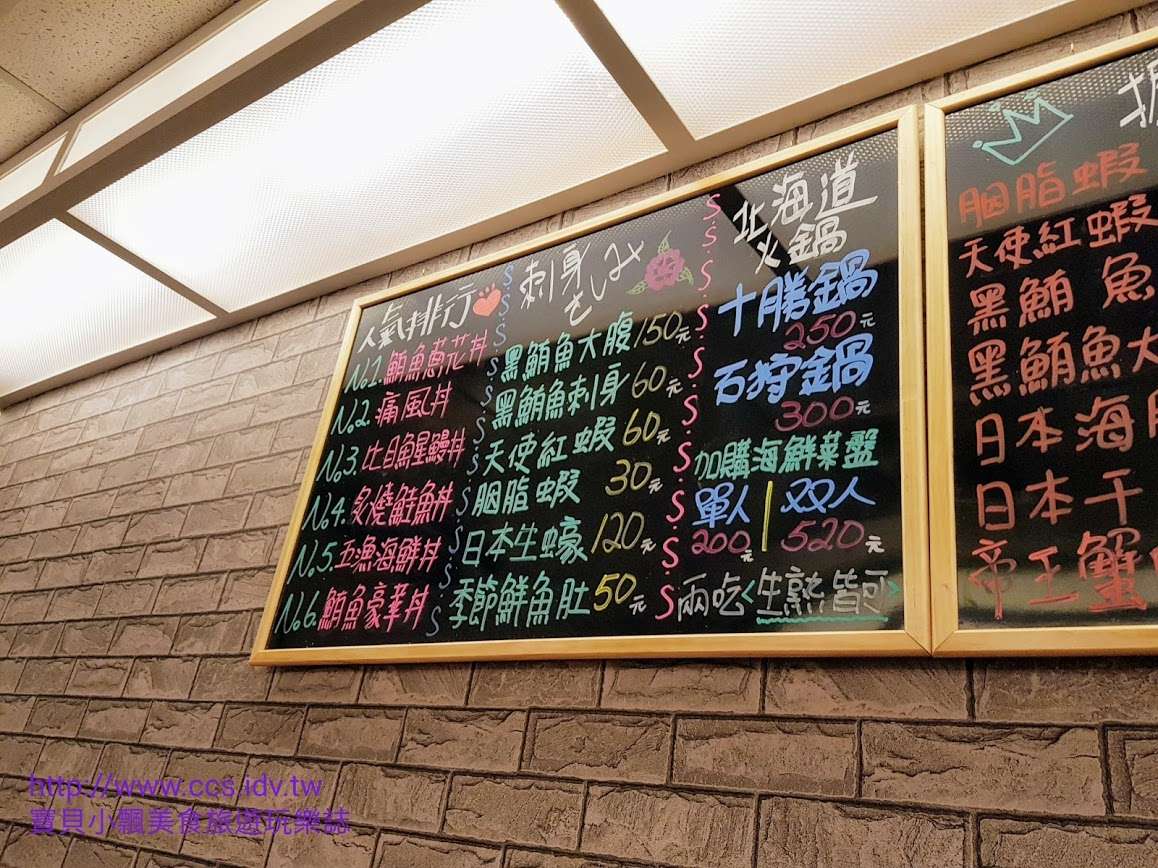 人氣排行
No.1.鮪魚蔥花丼
No.2.痛風丼
No.3.比目魚星鰻丼
No.4.炙燒鮭魚丼
No.5.五漁海鮮丼
No.6.鮪魚豪華丼
刺身
さしみ
黑鮪魚大腹150元
黑鮪魚刺身60元
天使紅蝦60元
胭脂蝦30元
日本生蠔120元
季節鮮魚肚50元
北海道
火鍋
十勝鍋
250元
石狩鍋
300元
加購海鮮菜盤
單人|双人
200元|520元
兩吃<生熟皆可>
胭脂蝦
天使紅蝦
黑鮪魚
黑鮪魚大
日本海
日本干
帝王蟹
http://www.ccs.idv.tw
寶貝小飄美食旅遊玩樂誌